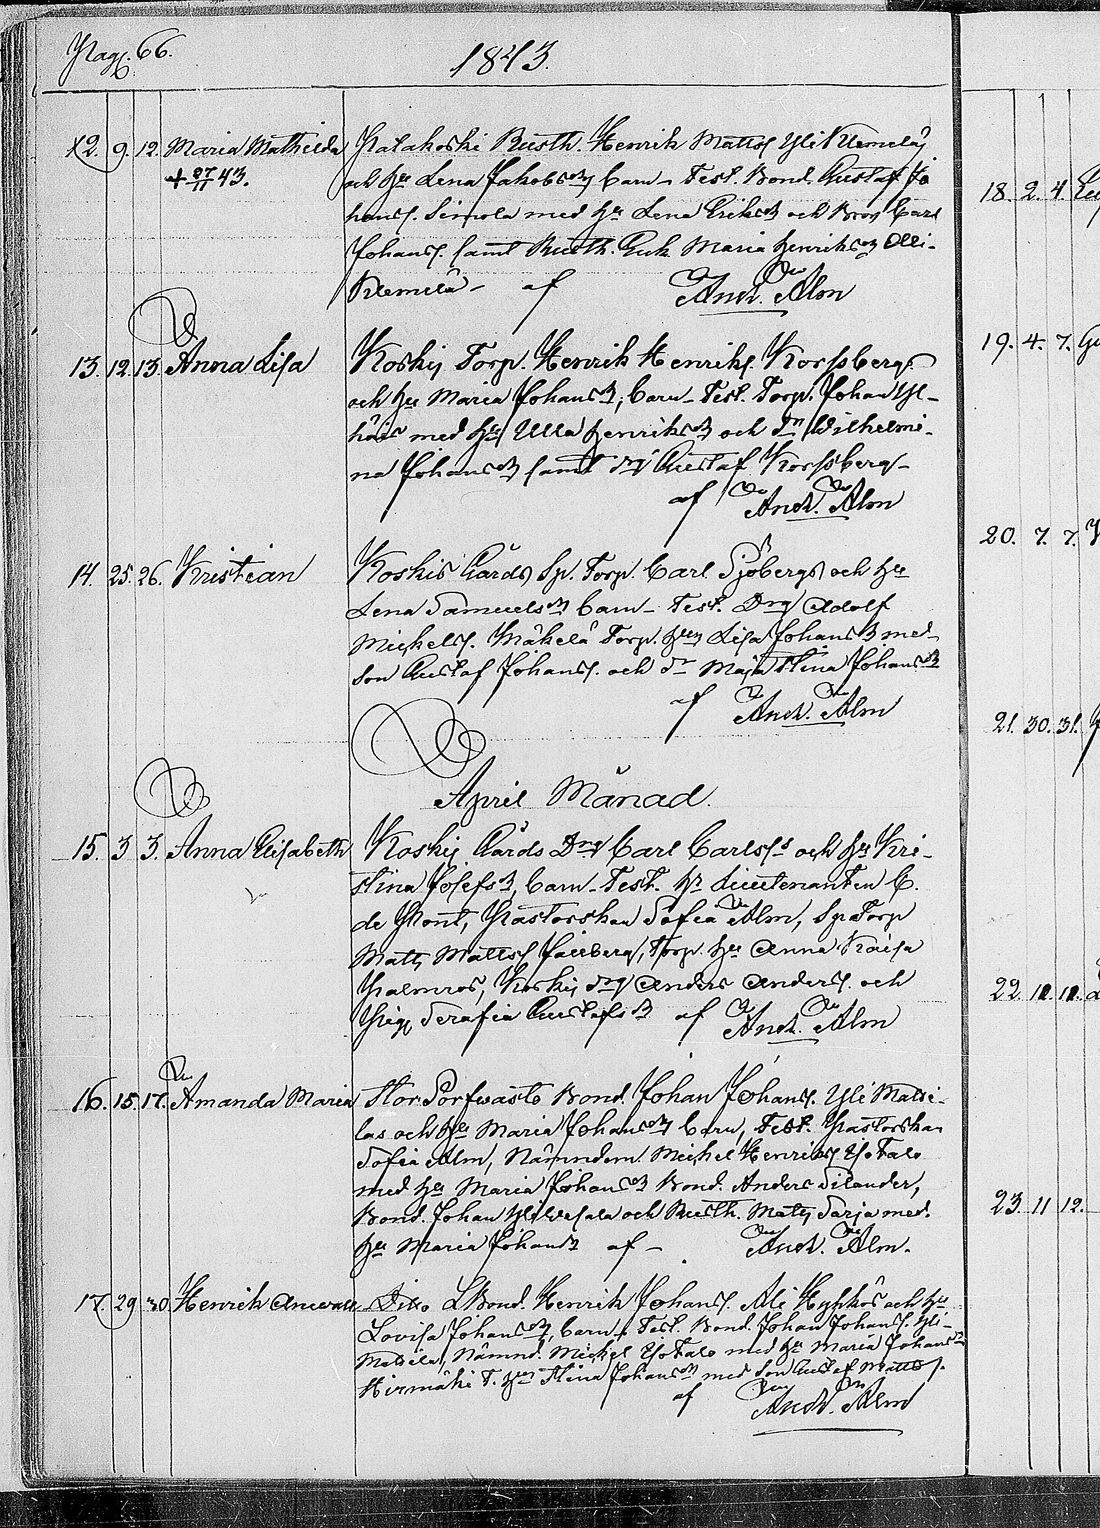 Pag. 66.
1843.
12. 9. 12. Maria Mathilda Hatakoski Rusth. Henrik Matts. Yli Klemelä
+ 27/11 43. och h:u Lena Jakobsdr Barn - Test. Bond. Gustaf Jo
hans. Simola med h:u Lena Eriksdr och Bror Carl
Johans. samt Rusth. Enk. Maria Henriksdr Olli-
Klemelä - af And. Alm
13. 12. 13. Anna Lisa Koskis Torp. Henrik Henriks. Korssbergs
och h:u Maria Johansdr, Barn - Test. Torp. Johan
med h:u Ulla Henriksdr och d:n Wilhelmi-
na Johansdr samt drg Gustaf Korssberg -
af And. Alm
14. 25. 26. Kristian Koskis Gårds Sp. Torp. Carl Sjöbergs och h:u
Lena Samuelsdr Barn - Test. Drg Adolf
Michels. Mäkelä Torp. h:u Lisa Johansdr med
son Gustaf Johans. och d:r Maja Stina Johansdr
af And. Alm
April Månad.
15. 3. 3. Anna Elisabeth Koskis Gårds Drg Carl Carlss. och h:u Kri-
stina Josefsdr, Barn - Test. Hr Lieutenanten C.
de Pont, Pastorskan Sofia Alm, Sp. Torp
Matts Mattss. Torp. h:u Anna Kaisa
Palmros, Koskis drg Anders Anders. och
Pig. Serafia Gustafsdr af And. Alm
16. 15. 17. Amanda Maria Stor Sorfwasto Bond. Johan Johans. Yli Matti-
las och h:u Maria Johansdr Barn, Test. Pastorskan
Sofia Alm, Nämndem. Michel Henriks. Isotalo
med h:u Maria Johansdr Bond. Anders Silander,
Bond. Johan och Rusth. Matts Sarja med
h:u Maria Johansdr af - And. Alm.
17. 29. 30. Henrik Ditto LBond. Henrik Johans. Ali Hyhkös och h:u
Lovisa Johansdr, Barn, Test. Bond. Johan Johans. Yli-
Mattila, Nämnd. Michel Isotalo med h:u Maria Johansdr
Hirmäki T. h:u Stina Johansdr med Son Gustaf Matts.
af And. Alm
18. 2. 4.
19. 4. 7.
20. 7. 7.
21. 30. 31.
22.
23. 11 12.